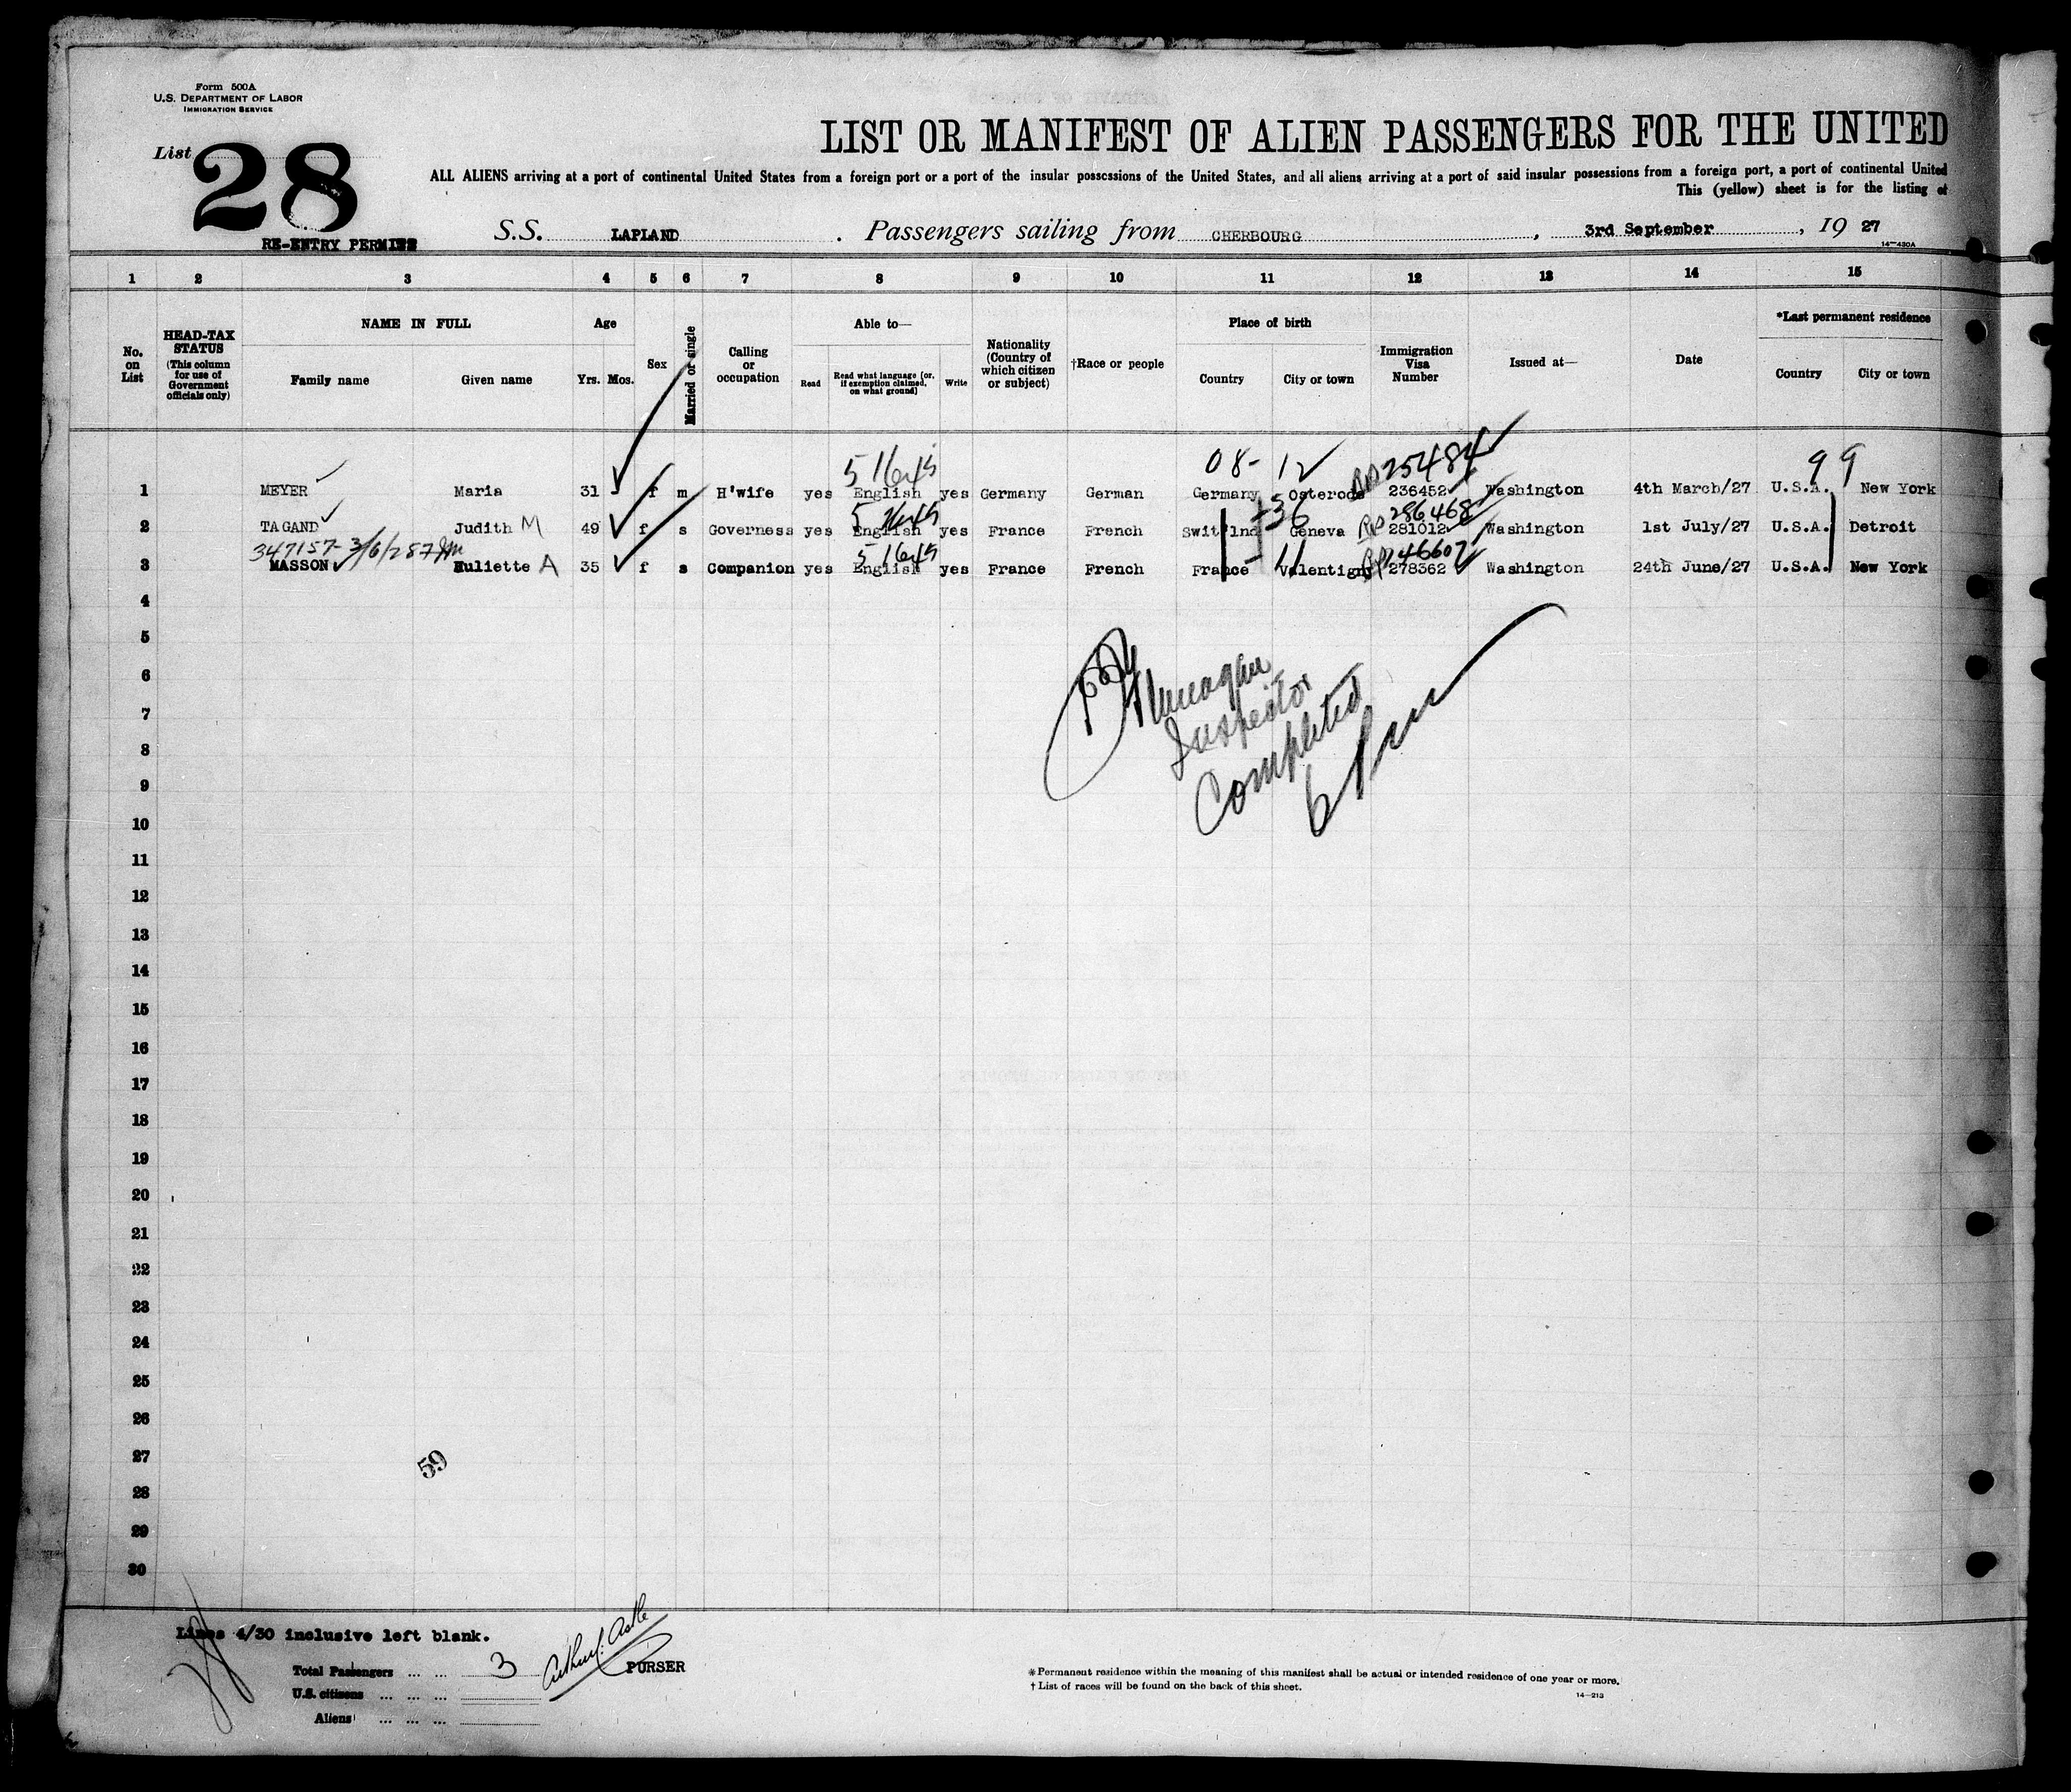 Form 500A
U.S. DEPARTMENT OF LABOR
IMMIGRATION SERVICE
List 28
RE-ENTRY PERMITS
LIST OR MANIFEST OF ALIEN PASSENGERS FOR THE UNITED
ALL ALIENS arriving at a port of continental United States from a foreign port or a port of the insular possessions of the United States, and all aliens arriving at a port of said insular possessions from a foreign port, a port of continental United
This (yellow) sheet is for the listing of
S.S. LAPLAND . Passengers sailing from CHERBOURG , 3rd September , 19 27
14—430A
1 2 3 4 5 6 7 8 9 10 11 12 13 14 15
No. on List
HEAD-TAX STATUS (This column for use of Government officials only)
NAME IN FULL
Family name Given name
Age
Yrs. Mos.
Sex
Married or single
Calling or occupation
Able to—
Read Read what language (or, if exemption claimed, on what ground) Write
Nationality (Country of which citizen or subject)
†Race or people
Place of birth
Country City or town
Immigration Visa Number
Issued at—
Date
*Last permanent residence
Country City or town
5 08- 12 RP 25484 99
1 MEYER Maria 31 f m H'wife yes English yes Germany German Germany Osterode 236452 Washington 4th March/27 U.S.A. New York
5 36 RP 286468
2 TAGAND Judith M 49 f s Governess yes English yes France French Swit'lnd Geneva 281012 Washington 1st July/27 U.S.A. Detroit
347157- 3/6/287 5 11 RP 146607
3 MASSON Huliette A 35 f s Companion yes English yes France French France Valentigny 278362 Washington 24th June/27 U.S.A. New York
4
5
6
7
8
9
10
11
12
13
14
15
16
17
18
19
20
21
22
23
24
25
26
27
28
29
30
Inspector
Completed
59
Lines 4/30 inclusive left blank.
Total Passengers ... ... 3
PURSER
U.S. citizens ... ... ...
Aliens ... ... ...
*Permanent residence within the meaning of this manifest shall be actual or intended residence of one year or more.
† List of races will be found on the back of this sheet.
14—213